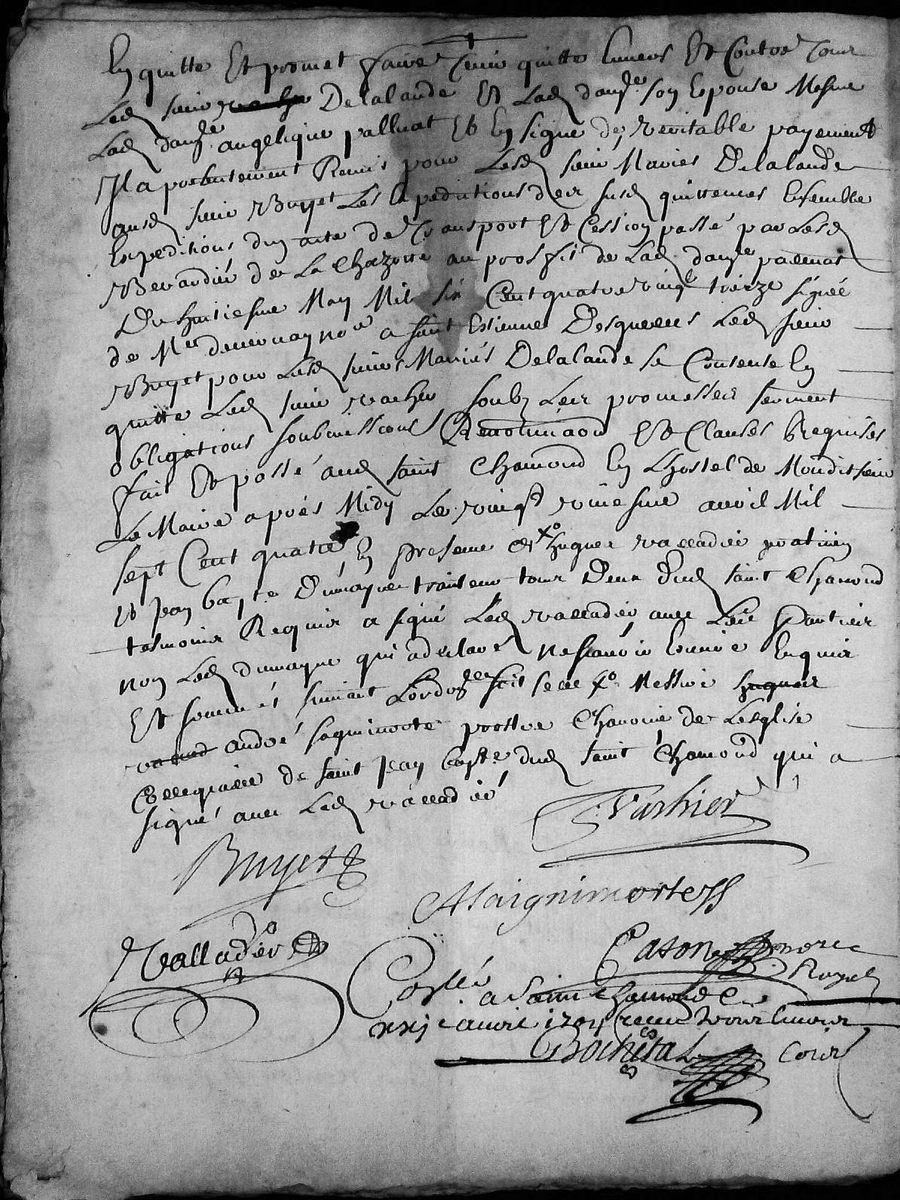 En quitte Et promet faire tenir quitte Envers Et Contre tous
Led sieur Delalande Et Lad dam.lle son Epouse Mesme
Lad dam.lle angelique palluat Et En signe de veritable payement
Il a presentement Remis pour Lesd sieur Maries Delalande
aud sieur Buyet Les Expeditions des susd quittances Ensemble
Expeditions du acte de Transport Et Cession passé par Led
Verandier de La Chazotte au proffit de Lad dam.lle palluat
Du huitiesme May Mil six Cent quatre vingt treize signée
de M.e no.re a saint Estienne Desquelles Led sieur
Buyet pour Lesd sieurs Mariés Delalande se Contente En
quitte Led sieur vacher soubz Leurs promesses serment
obligations soubmissions Renonciaon Et Clauses Requises
fait Et passé aud saint Chamond En Lhostel de Mondit sieur
Le Maire apres Midy Le vingt uniesme avril Mil
sept Cent quatre En presence de hugues valladier praticien
Et Jean bap.te Dumayne tous Deux dud saint Chamond
tesmoins Requis a signé Led valladier avec Les parties
non Led dumayne qui a declaré ne scavoir Escrire Enquis
Et sommé suivant Lord.ce soit Messire
andré saignimorte prestre Chanoine de Lesglise
Collegialle de saint Jean bap.te dud saint Chamond qui a
signé avec Led valladier
Vachier
Buyet
A Saignimortess
Valladier
Caton no.re
Royal
Con.llé
a Saint Chamond Ce
xxj.e avril 1704 receu
Bochetal